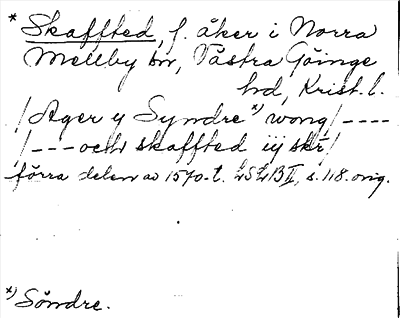 * Skaffted, f. åker i Norra
Mellby sn, Västra Göinge
hd, Krist. l.
/ Ager y Syndre *) wong / ----
/ --- och skaffted iij skr /
förra delen av 1570-t. LSLB II, s. 118. orig.
*) Söndre.